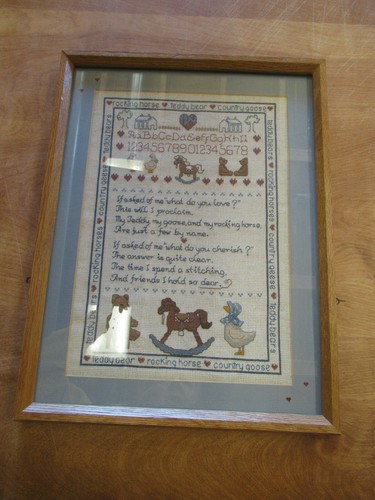 rocking horse ♥ teddy bear ♥ country goose
Aa Bb Cc Dd Ee Ff Gg Hh Ii
123456789012345678
If asked of me "what do you love?"
This will I proclaim.
My Teddy, my goose and my rocking horse,
Are just a few by name.
If asked of me "what do you cherish?"
The answer is quite clear.
The time I spend a stitching.
And friends I hold so dear.
teddy bear ♥ rocking horse ♥ country goose
teddy bears ♥ country geese ♥ rocking horses ♥ teddy bears
teddy bears ♥ rocking horses ♥ country geese ♥ teddy bears